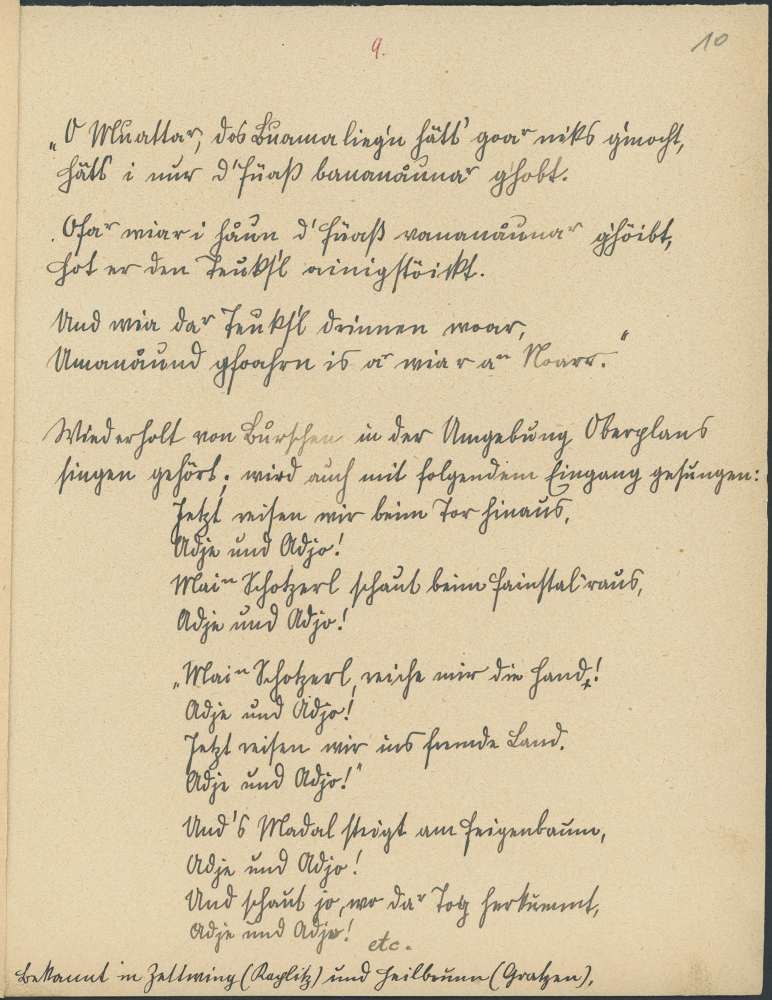 9.
10
„O Muattar, dos Buama lieg'n hätt' goar niks g'mocht,
hätt' i nur d' Füaß bananåunar g'hobt.
Ofar wiar i håun d' Füaß vananåunar g'höibt,
hot er den Teuksl ainigstöickt.
Und wia dar Teuksl drinnen woar,
Umanåund gfoahrn is ar wiar an Noarr."
Wiederholt von Burschen in der Umgebung Oberplans
singen gehört; wird auch mit folgendem Eingang gesungen:
Jetzt reisen wir beim Tor hinaus,
Adje und Adjo!
Main Schotzerl schaut beim Fainstal 'raus,
Adje und Adjo!
„Main Schotzerl, reiche mir die Hand,!
Adje und Adjo!
Jetzt reisen wir ins fremde Land.
Adje und Adjo!"
Und's Madal steigt am Feigenbaum,
Adje und Adjo!
Und schaut jo, wo dar Tog herkummt,
Adje und Adjo!
etc.
Bekannt in Zettwing (Kaplitz) und Heilbrunn (Gratzen),